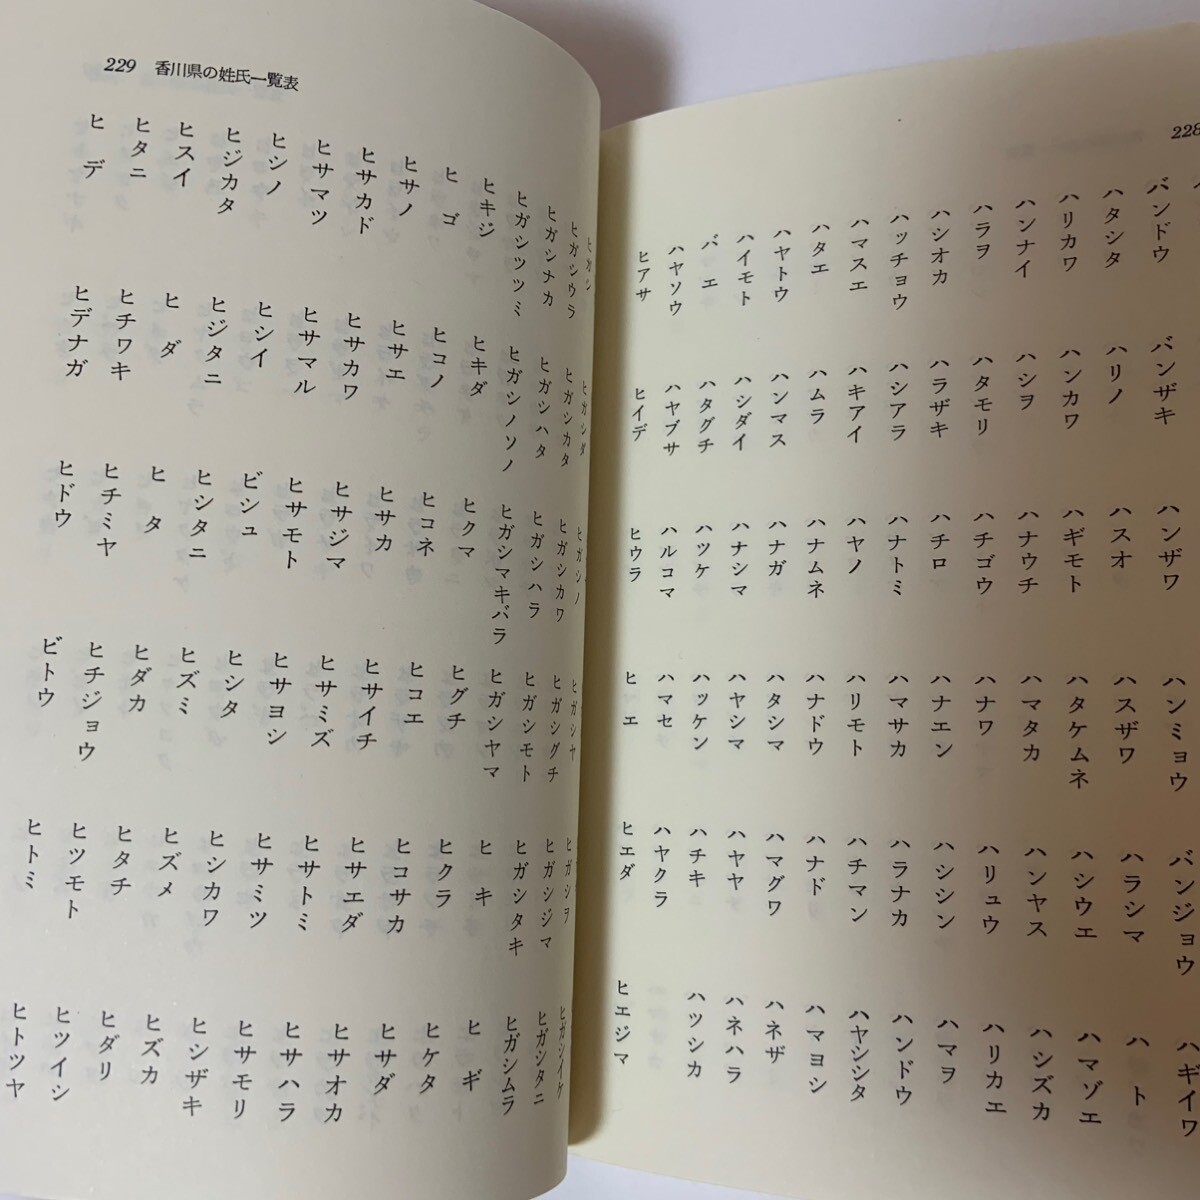 228
バンドウ バンザキ ハンザワ ハンミョウ バンジョウ ハギイワ
ハタシタ ハリノ ハスオ ハスザワ ハラシマ ハト
ハリカワ ハンカワ ハギモト ハタケムネ ハシウエ ハマゾエ
ハンナイ ハシヲ ハナウチ ハマタカ ハンヤス ハシズカ
ハラヲ ハタモリ ハチゴウ ハナワ ハリュウ ハリカエ
ハシオカ ハラザキ ハチロ ハナエン ハシシン ハマヲ
ハッチョウ ハシアラ ハナトミ ハマサカ ハラナカ ハンドウ
ハマスエ ハキアイ ハヤノ ハリモト ハチマン ハヤシシタ
ハタエ ハムラ ハナムネ ハナドウ ハナド ハマヨシ
ハヤトウ ハンマス ハナガ ハタシマ ハマグワ ハネザ
ハイモト ハシダイ ハナシマ ハヤシマ ハヤヤ ハネハラ
バエ ハタグチ ハツケ ハッケン ハチキ ハツシカ
ハヤソウ ハヤブサ ハルコマ ハマセ ハヤクラ
ヒアサ ヒイデ ヒウラ ヒエ ヒエダ ヒエジマ
229 香川県の姓氏一覧表
ヒガシ ヒガシダ ヒガシノ ヒガシヤ ヒガシヲ ヒガシイケ
ヒガシウラ ヒガシカタ ヒガシカワ ヒガシグチ ヒガシジマ ヒガシタニ
ヒガシナカ ヒガシハタ ヒガシハラ ヒガシモト ヒガシタキ ヒガシムラ
ヒガシツツミ ヒガシノソノ ヒガシマキバラ ヒガシヤマ ヒキ ヒギ
ヒキジ ヒキダ ヒクマ ヒグチ ヒクラ ヒケタ
ヒゴ ヒコノ ヒコネ ヒコエ ヒコサカ ヒサダ
ヒサノ ヒサエ ヒサカ ヒサイチ ヒサエダ ヒサオカ
ヒサカド ヒサカワ ヒサジマ ヒサミズ ヒサトミ ヒサハラ
ヒサマツ ヒサマル ヒサモト ヒサヨシ ヒサミツ ヒサモリ
ヒシノ ヒシイ ビシュ ヒシタ ヒシカワ ヒシザキ
ヒジカタ ヒジタニ ヒシタニ ヒズミ ヒズメ ヒズカ
ヒスイ ヒダ ヒタ ヒダカ ヒタチ ヒダリ
ヒタニ ヒチワキ ヒチミヤ ヒチジョウ ヒツモト ヒツイシ
ヒデ ヒデナガ ヒドウ ビトウ ヒトミ ヒトツヤ